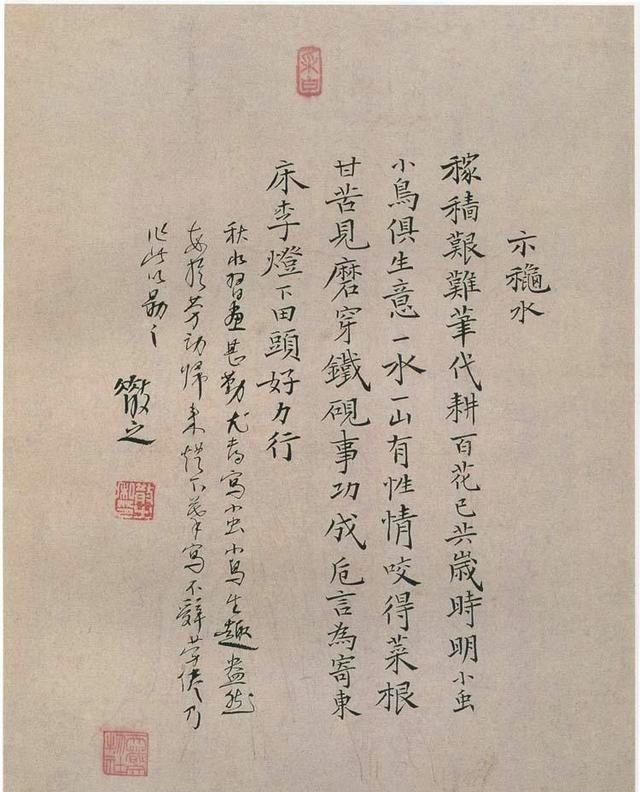 示穐水
稼穡艱難筆代耕百花已共歲時明小虫
小鳥俱生意一水一山有性情咬得菜根
甘苦見磨穿鐵硯事功成卮言為寄東
床李燈下田頭好力行
秋水習畫甚勤尤喜寫小虫小鳥生趣盎然
每於勞动歸来燈下寫不辭勞倦乃
作此以勗之
散之